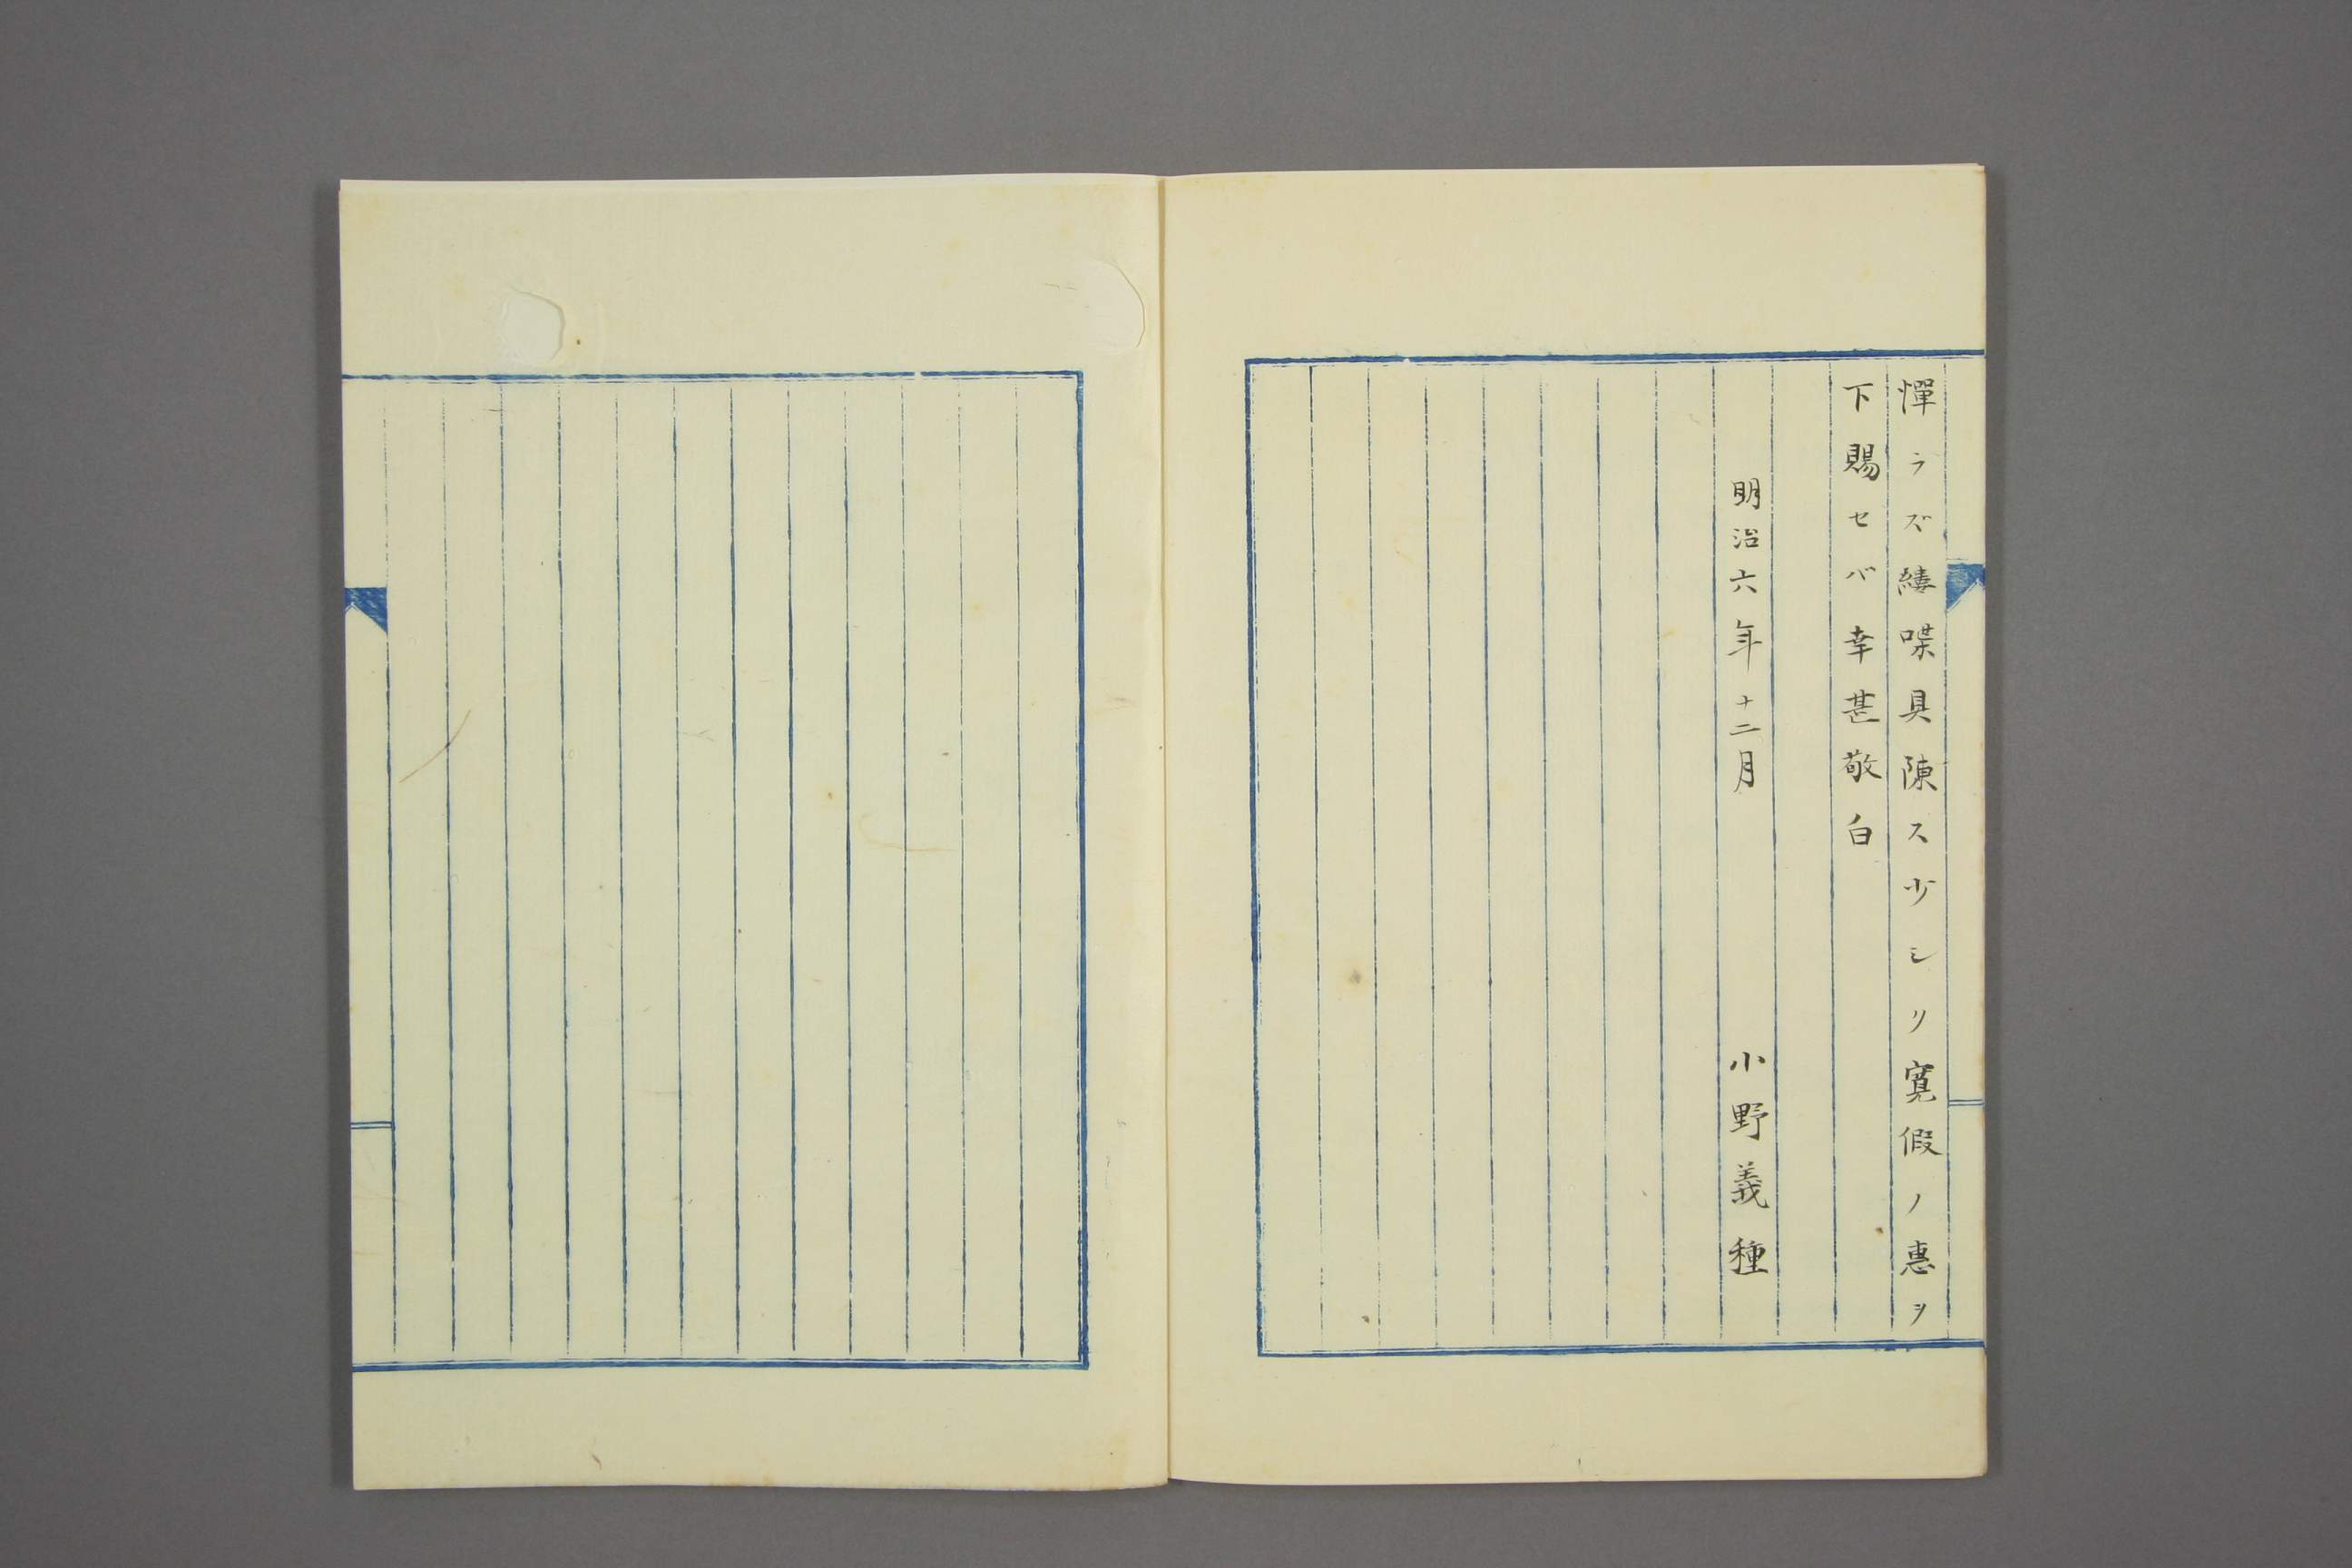 憚ラズ縷喋具陳ス少シク寛假ノ惠ヲ
下賜セバ幸甚敬白
明治六年十二月　小野義種